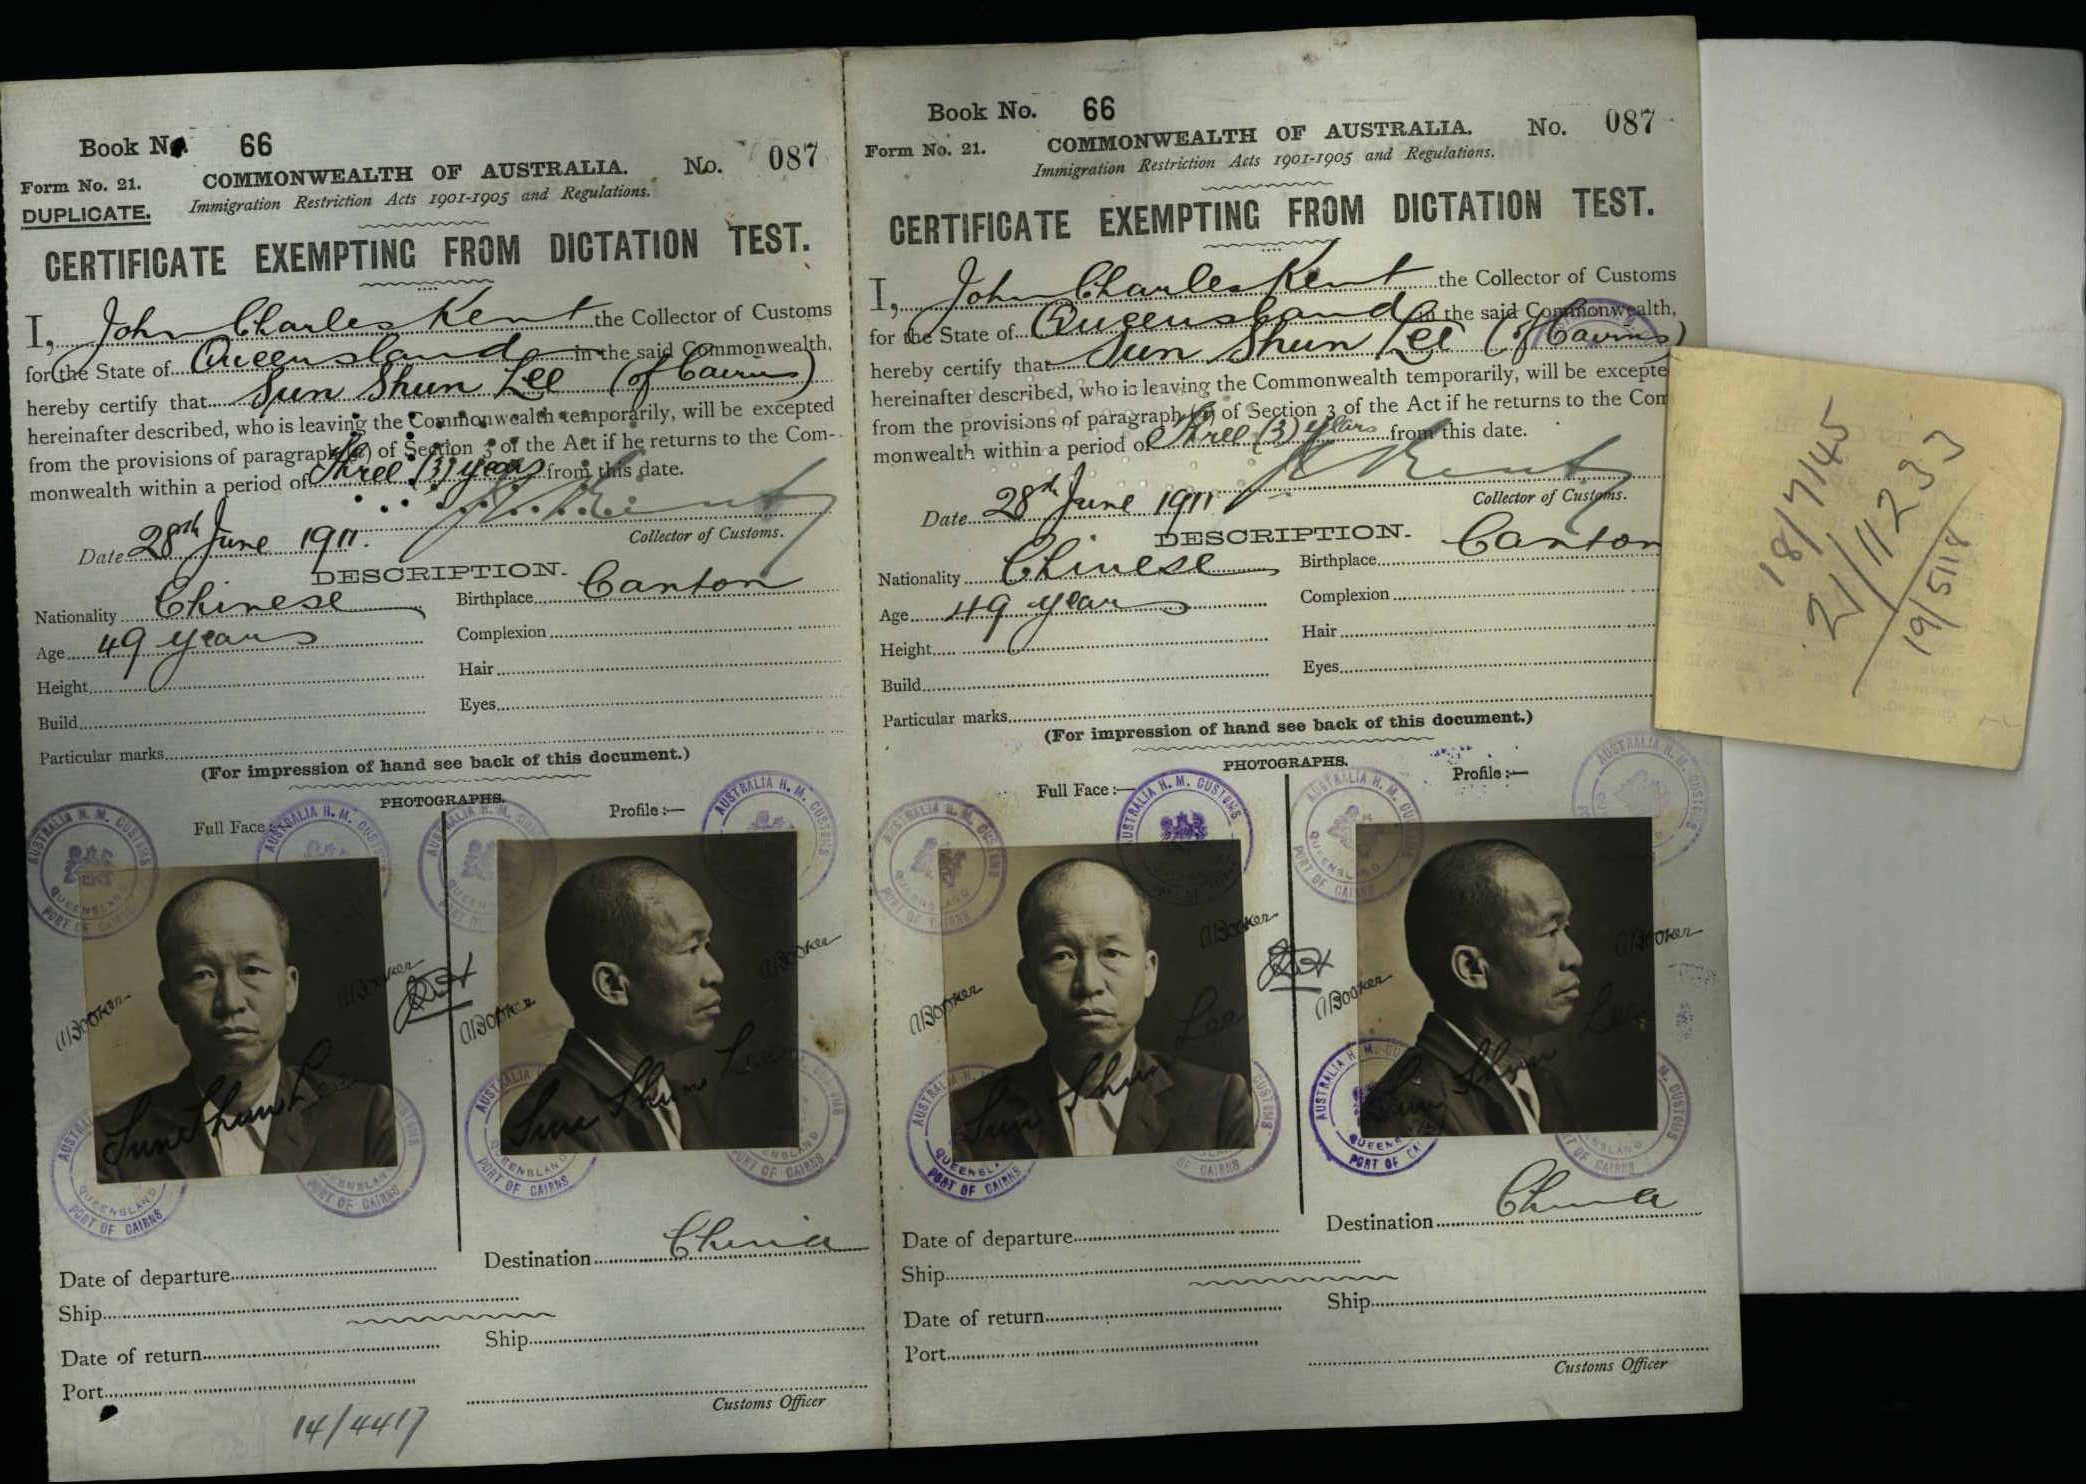 Book No. 66
Form No. 21.
COMMONWEALTH OF AUSTRALIA.
No. 087
DUPLICATE.
Immigration Restriction Acts 1901-1905 and Regulations.
CERTIFICATE EXEMPTING FROM DICTATION TEST.
I, John Charles Kent the Collector of Customs
for the State of Queensland in the said Commonwealth,
hereby certify that Sun Shun Lee (of Cairns)
hereinafter described, who is leaving the Commonwealth temporarily, will be excepted
from the provisions of paragraph (a) of Section 3 of the Act if he returns to the Com-
monwealth within a period of Three (3) years from this date.
Date 28th June 1911.
Collector of Customs.
DESCRIPTION.
Nationality Chinese
Birthplace Canton
Age 49 years
Complexion
Height
Hair
Build
Eyes
Particular marks
(For impression of hand see back of this document.)
PHOTOGRAPHS.
Full Face:—
Profile:—
AUSTRALIA H. M. CUSTOMS
QUEENSLAND
PORT OF CAIRNS
A Booker
A Booker
A Booker
A Booker
Sun Shun Lee
Sun Shun Lee
Destination China
Date of departure
Ship
Date of return
Ship
Port
Customs Officer
14/4417
Book No. 66
Form No. 21.
COMMONWEALTH OF AUSTRALIA.
No. 087
Immigration Restriction Acts 1901-1905 and Regulations.
CERTIFICATE EXEMPTING FROM DICTATION TEST.
I, John Charles Kent the Collector of Customs
for the State of Queensland in the said Commonwealth,
hereby certify that Sun Shun Lee (of Cairns)
hereinafter described, who is leaving the Commonwealth temporarily, will be excepte
from the provisions of paragraph (a) of Section 3 of the Act if he returns to the Com
monwealth within a period of Three (3) years from this date.
Date 28th June 1911
Collector of Customs.
DESCRIPTION.
Nationality Chinese
Birthplace Canton
Age 49 years
Complexion
Height
Hair
Build
Eyes
Particular marks
(For impression of hand see back of this document.)
PHOTOGRAPHS.
Full Face:—
Profile:—
AUSTRALIA H. M. CUSTOMS
QUEENSLAND
PORT OF CAIRNS
A Booker
A Booker
A Booker
A Booker
Sun Shun Lee
Sun Shun Lee
Destination China
Date of departure
Ship
Date of return
Ship
Port
Customs Officer
18/7145
21/11233
19/5118